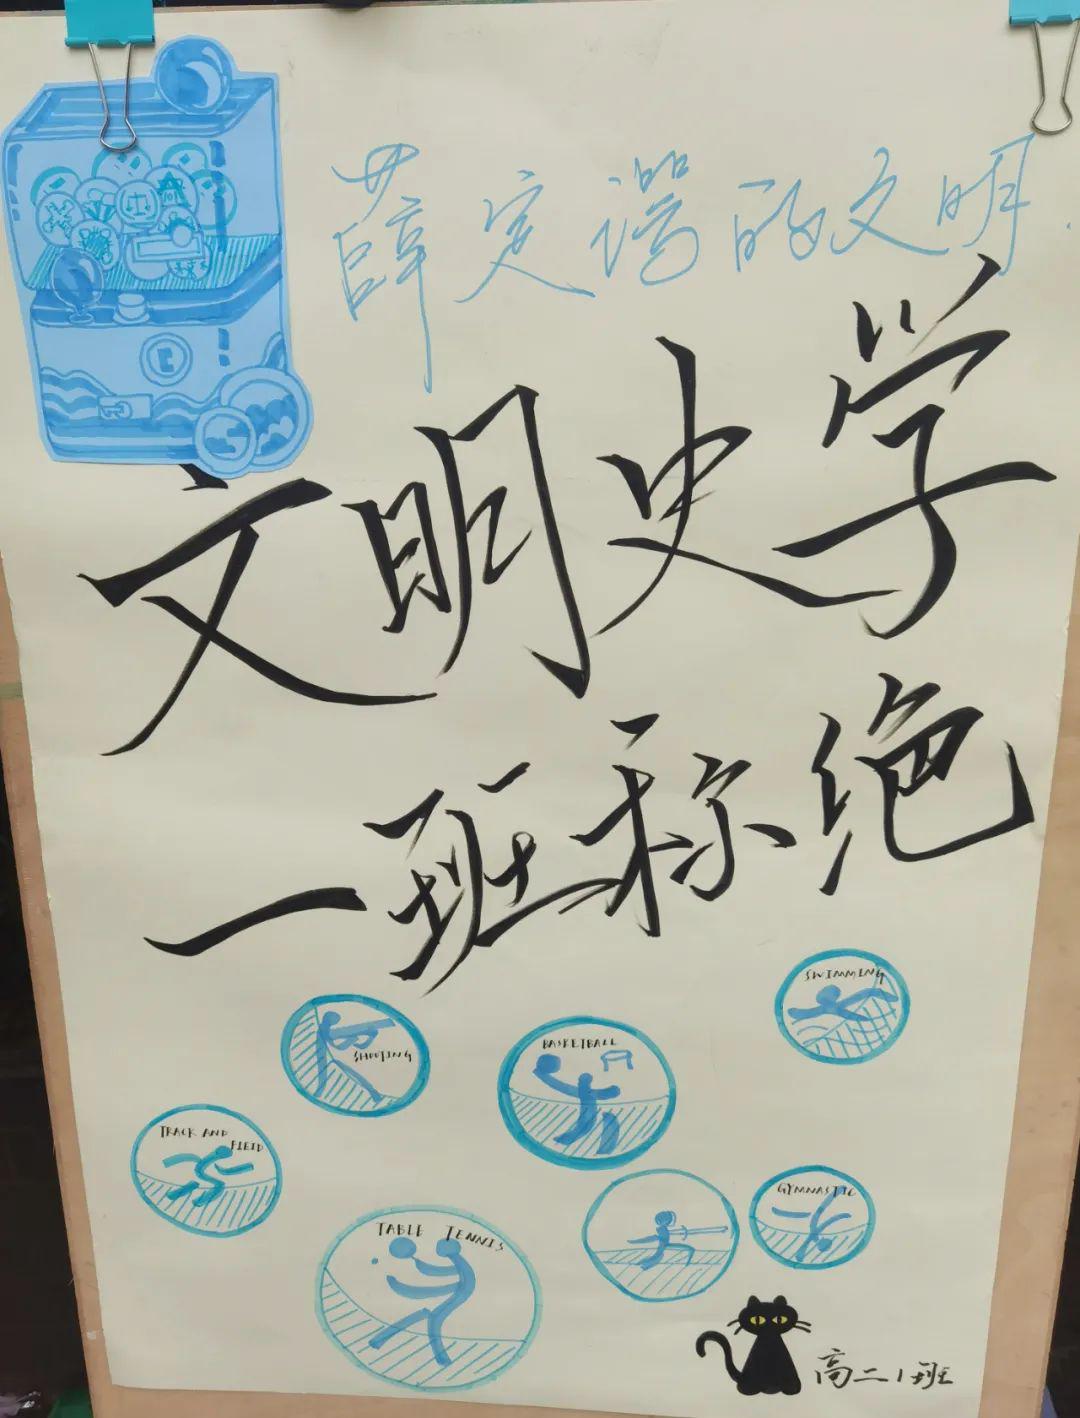 薛定谔的文明
文明史学
一班称绝
SWIMMING
SHOOTING
BASKETBALL
TRACK AND
FIELD
GYMNASTIC
TABLE TENNIS
高二1班